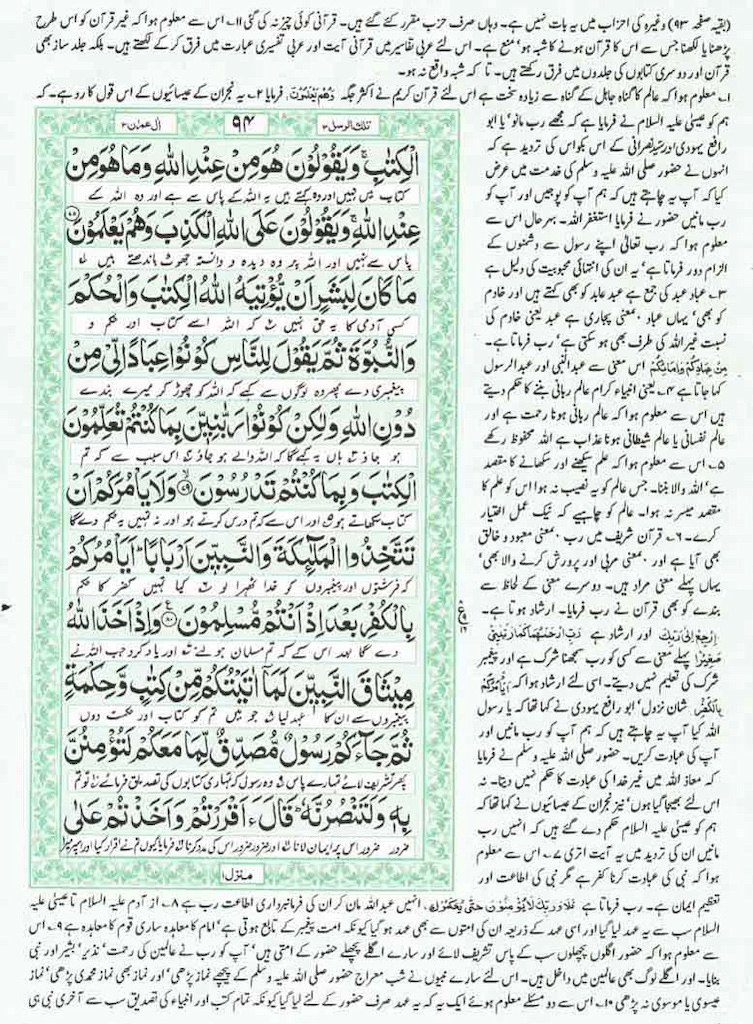 (بقیہ صفحہ ۹۳) وغیرہ کی احزاب میں یہ بات نہیں ہے۔ وہاں صرف حزب مقرر کئے گئے ہیں۔ قرآنی کوئی چیز نہ کی گئی ۱۱۔ اس سے معلوم ہوا کہ غیر قرآن کو اس طرح
پڑھنا یا لکھنا جس سے اس کا قرآن ہونے کا شبہ ہو منع ہے۔ اس لئے عربی تفاسیر میں قرآنی آیت اور عربی تفسیری عبارت میں فرق کر کے لکھتے ہیں۔ بلکہ جلد ساز بھی
قرآن اور دوسری کتابوں کی جلدوں میں فرق رکھتے ہیں۔ تاکہ شبہ واقع نہ ہو۔
۱۔ معلوم ہوا کہ عالم کا گناہ جاہل کے گناہ سے زیادہ سخت ہے اس لئے قرآن کریم نے اکثر جگہ وَهُمْ يَعْلَمُوْنَ، فرمایا ۲۔ یہ نجران کے عیسائیوں کے اس قول کا رد ہے۔ کہ
اٰل عمرٰن ۳
۹۴
تلك الرسل ۳
الْكِتٰبِ ۚ وَيَقُوْلُوْنَ هُوَ مِنْ عِنْدِ اللّٰهِ وَمَا هُوَ مِنْ
کتاب میں نہیں اور وہ کہتے ہیں یہ اللہ کے پاس سے ہے اور وہ اللہ کے
عِنْدِ اللّٰهِ ۚ وَيَقُوْلُوْنَ عَلَى اللّٰهِ الْكَذِبَ وَهُمْ يَعْلَمُوْنَ ۷۸
پاس سے نہیں اور اللہ پر وہ دیدہ و دانستہ جھوٹ باندھتے ہیں
مَا كَانَ لِبَشَرٍ اَنْ يُّؤْتِيَهُ اللّٰهُ الْكِتٰبَ وَالْحُكْمَ
کسی آدمی کا یہ حق نہیں کہ اللہ اسے کتاب اور حکم و
وَالنُّبُوَّةَ ثُمَّ يَقُوْلَ لِلنَّاسِ كُوْنُوْا عِبَادًا لِّيْ مِنْ
پیغمبری دے پھر وہ لوگوں سے کہے کہ اللہ کو چھوڑ کر میرے بندے
دُوْنِ اللّٰهِ وَلٰكِنْ كُوْنُوْا رَبّٰنِيّٖنَ بِمَا كُنْتُمْ تُعَلِّمُوْنَ
ہو جاؤ ہاں یہ کہے گا کہ اللہ والے ہو جاؤ اس سبب سے کہ تم
الْكِتٰبَ وَبِمَا كُنْتُمْ تَدْرُسُوْنَ ۷۹ وَلَا يَاْمُرَكُمْ اَنْ
کتاب سکھاتے ہو اور اس سے کہ تم درس کرتے ہو اور نہ تمہیں یہ حکم دے گا
تَتَّخِذُوا الْمَلٰٓئِكَةَ وَالنَّبِيّٖنَ اَرْبَابًا ۗ اَيَاْمُرُكُمْ
کہ فرشتوں اور پیغمبروں کو خدا ٹھہرا لو کیا تمہیں کفر کا حکم
بِالْكُفْرِ بَعْدَ اِذْ اَنْتُمْ مُّسْلِمُوْنَ ۸۰ وَاِذْ اَخَذَ اللّٰهُ
دے گا بعد اس کے کہ تم مسلمان ہولئے اور یاد کرو جب اللہ نے
مِيْثَاقَ النَّبِيّٖنَ لَمَآ اٰتَيْتُكُمْ مِّنْ كِتٰبٍ وَّحِكْمَةٍ
پیغمبروں سے ان کا عہد لیا جو میں تم کو کتاب اور حکمت دوں
ثُمَّ جَآءَكُمْ رَسُوْلٌ مُّصَدِّقٌ لِّمَا مَعَكُمْ لَتُؤْمِنُنَّ
پھر تشریف لائے تمہارے پاس وہ رسول کہ تمہاری کتابوں کی تصدیق فرمائے تو تم
بِهٖ وَلَتَنْصُرُنَّهٗ ۚ قَالَ ءَاَقْرَرْتُمْ وَاَخَذْتُمْ عَلٰى
ضرور ضرور اس پر ایمان لانا اور ضرور ضرور اس کی مدد کرنا فرمایا کیوں تم نے اقرار کیا اور اس پر میرا
منزل ۱
ہم کو عیسیٰ علیہ السلام نے فرمایا ہے کہ مجھے رب مانو یا ابو
رافع یہودی اور نصرانی کے اس بکواس کی تردید ہے کہ
انہوں نے حضور صلی اللہ علیہ وسلم کی خدمت میں عرض
کیا کہ آپ یہ چاہتے ہیں کہ ہم آپ کو پوجیں اور آپ کو
رب مانیں حضور نے فرمایا استغفر اللہ۔ بہرحال اس سے
معلوم ہوا کہ رب تعالیٰ اپنے رسول سے دشمنوں کے
الزام دور فرماتا ہے یہ ان کی انتہائی محبوبیت کی دلیل ہے
۳۔ عباد عبد کی جمع ہے عبد عابد کو بھی کہتے ہیں اور خادم
کو بھی، یہاں عباد بمعنی پجاری ہے عبد یعنی خادم کی
نسبت غیر اللہ کی طرف بھی ہو سکتی ہے رب فرماتا ہے۔
مِنْ عِبَادِكُمْ وَاِمَآئِكُمْ اس معنی سے عبد النبی اور عبد الرسول
کہا جاتا ہے ۴۔ یعنی انبیاء کرام عالم ربانی بننے کا حکم دیتے
ہیں اس سے معلوم ہوا کہ عالم ربانی ہونا رحمت ہے اور
عالم نفسانی یا عالم شیطانی ہونا عذاب ہے اللہ محفوظ رکھے
۵۔ اس سے معلوم ہوا کہ علم سیکھنے اور سکھانے کا مقصد
ہے اللہ والا بننا۔ جس عالم کو یہ نصیب نہ ہوا اس کو علم کا
مقصد میسر نہ ہوا۔ عالم کو چاہیے کہ نیک عمل اختیار
کرے۔ ۶۔ قرآن شریف میں رب بمعنی معبود و خالق
بھی آیا ہے اور بمعنی مربی اور پرورش کرنے والا بھی،
یہاں پہلے معنی مراد ہیں۔ دوسرے معنی کے لحاظ سے
بندے کو بھی قرآن نے رب فرمایا۔ ارشاد ہوتا ہے۔
اِرْجِعْ اِلٰى رَبِّكَ اور ارشاد ہے رَبِّ ارْحَمْهُمَا كَمَا رَبَّيٰنِيْ
صَغِيْرًا پہلے معنی سے کسی کو رب سمجھنا شرک ہے اور پیغمبر
شرک کی تعلیم نہیں دیتے۔ اسی لئے ارشاد ہوا کہ اَيَاْمُرُكُمْ
بِالْكُفْرِ شان نزول، ابو رافع یہودی نے کہا تھا کہ یا رسول
اللہ کیا آپ یہ چاہتے ہیں کہ ہم آپ کو رب مانیں اور
آپ کی عبادت کریں۔ حضور صلی اللہ علیہ وسلم نے فرمایا
کہ معاذ اللہ میں غیر خدا کی عبادت کا حکم نہیں دیتا۔ نہ
اس لئے بھیجا گیا ہوں، نیز نجران کے عیسائیوں نے کہا تھا کہ
ہم کو عیسیٰ علیہ السلام حکم دے گئے ہیں کہ انہیں رب
مانیں ان کی تردید میں یہ آیت اتری ۷۔ اس سے معلوم
ہوا کہ نبی کی عبادت کرنا کفر ہے مگر نبی کی اطاعت اور
تعظیم ایمان ہے۔ رب فرماتا ہے فَلَا وَرَبِّكَ لَا يُؤْمِنُوْنَ حَتّٰى يُحَكِّمُوْكَ، انہیں عبداللہ مان کر ان کی فرمانبرداری اطاعت رب ہے ۸۔ از آدم علیہ السلام تا عیسیٰ علیہ
السلام سب سے یہ عہد لیا گیا اور اسی عہد کے ذریعہ ان کی امتوں سے بھی عہد ہو گیا کیونکہ امت پیغمبر کے تابع ہوتی ہے، امام کا معاہدہ ساری قوم کا معاہدہ ہے ۹۔ اس
سے معلوم ہوا کہ حضور اگلوں پچھلوں سب کے پاس تشریف لائے اور سارے اگلے پچھلے حضور کے امتی ہیں، آپ کو رب نے عالمین کی رحمت، نذیر، بشیر اور نبی
بنایا۔ اور اگلے لوگ بھی عالمین میں داخل ہیں۔ اس لئے سارے نبیوں نے شب معراج حضور صلی اللہ علیہ وسلم کے پیچھے نماز پڑھی، اور نماز بھی نماز محمدی پڑھی، نماز
عیسوی یا موسوی نہ پڑھی ۱۰۔ اس سے دو مسئلے معلوم ہوئے ایک یہ کہ یہ عہد صرف حضور کے لئے لیا گیا کیونکہ تمام کتب اور انبیاء کی تصدیق سب سے آخری نبی ہی